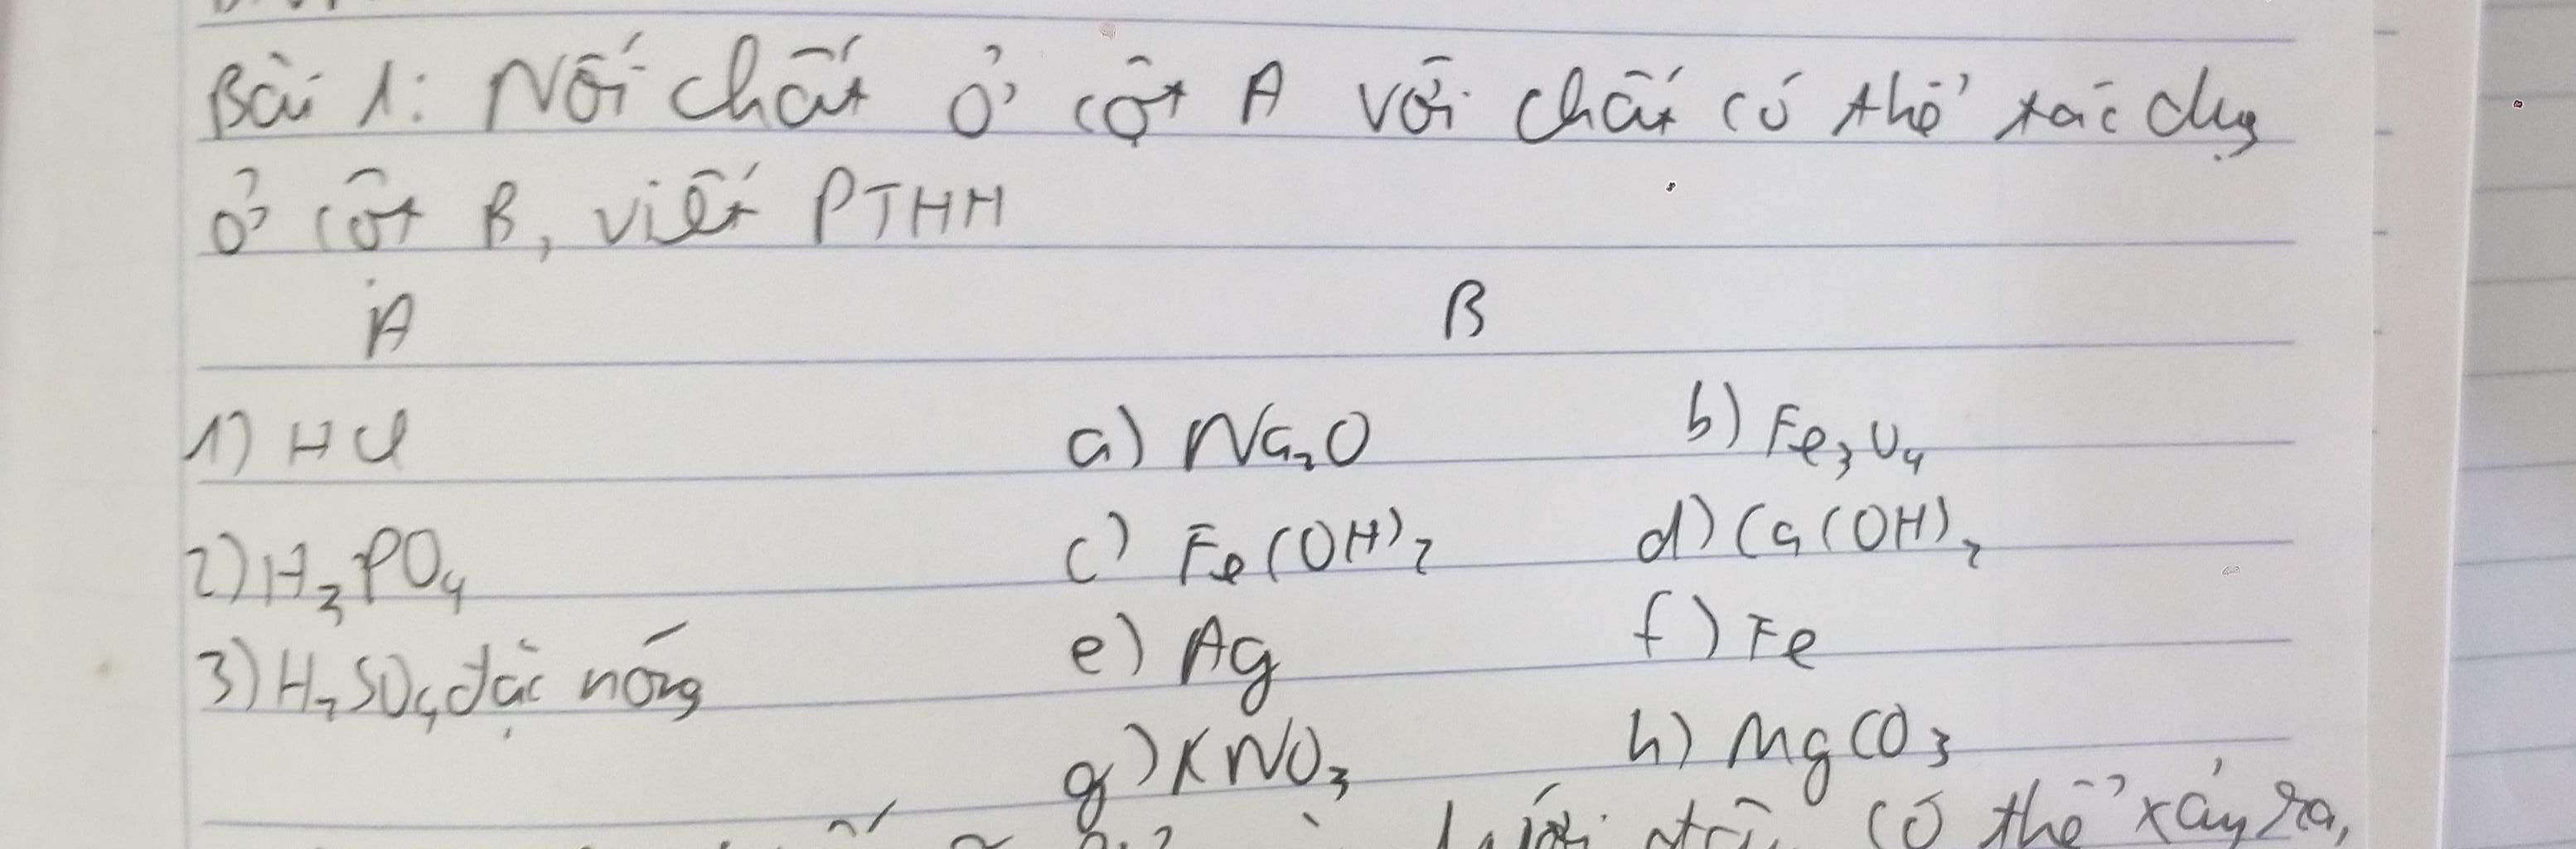 Bài 1: Nối chất ở cột A với chất có thể tác dụng
ở cột B, viết PTHH
A B
1) HCl a) Na₂O b) Fe₃O₄
2) H₃PO₄ c) Fe(OH)₂ d) Ca(OH)₂
3) H₂SO₄ đặc nóng e) Ag f) Fe
g) KNO₃ h) MgCO₃
có thể xảy ra,